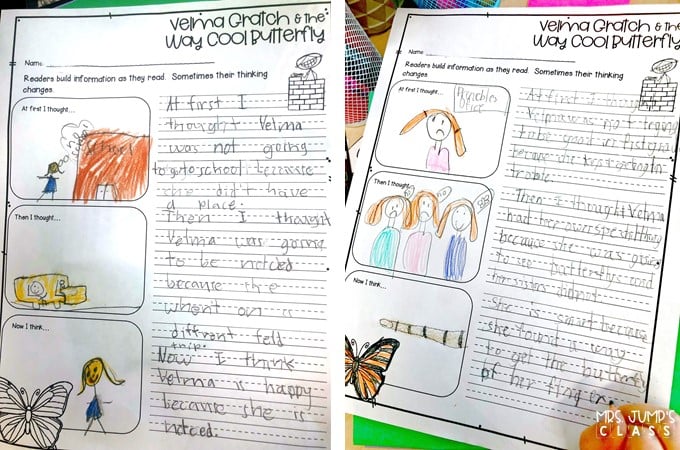 Velma Gratch & the
Way Cool Butterfly
Name:
Readers build information as they read. Sometimes their thinking
changes.
At first I thought...
School
Then I thought...
Now I think...
At first I
thought Velma
was not going
to go to school because
she didn't have
a place.
Then I thought
Velma was going
to be noticed
because the
on is
diffrent feld
trip.
Now I think
Velma is happy
because she is
noticed.
Velma Gratch & the
Way Cool Butterfly
Name:
Readers build information as they read. Sometimes their thinking
changes.
At first I thought...
Then I thought...
no
Now I think...
At first I thought
Velma was not going
to be good in
because she kept
Then I thought Velma
had her own
because she was going
to see butterflys and
her sisters did not
She is smart because
she found a way
to get the butterfly
of her finger.
MRS. JUMP'S
CLASS